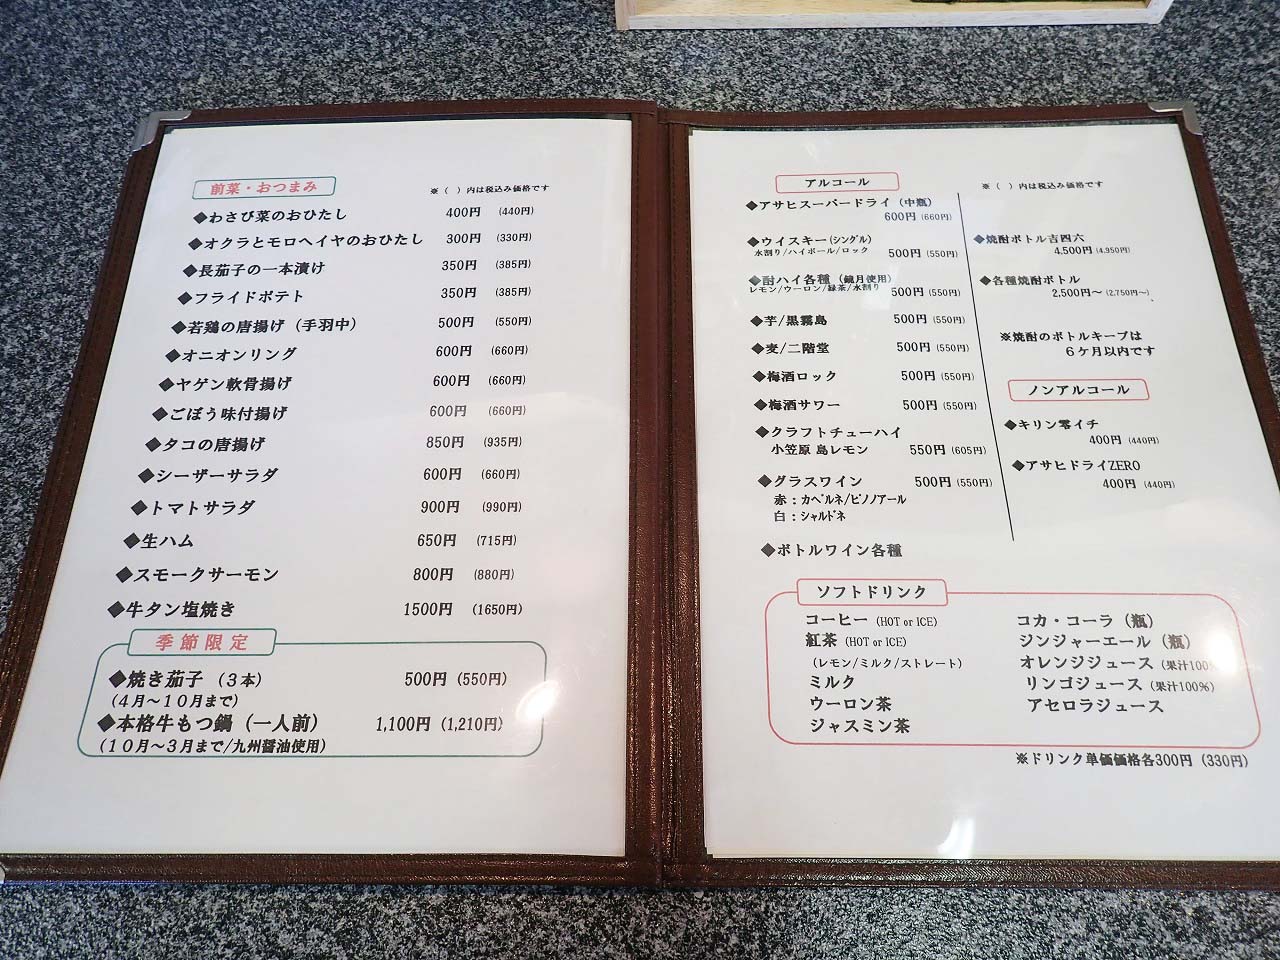 前菜・おつまみ
※（　）内は税込み価格です
◆わさび菜のおひたし 400円 (440円)
◆オクラとモロヘイヤのおひたし 300円 (330円)
◆長茄子の一本漬け 350円 (385円)
◆フライドポテト 350円 (385円)
◆若鶏の唐揚げ（手羽中） 500円 (550円)
◆オニオンリング 600円 (660円)
◆ヤゲン軟骨揚げ 600円 (660円)
◆ごぼう味付揚げ 600円 (660円)
◆タコの唐揚げ 850円 (935円)
◆シーザーサラダ 600円 (660円)
◆トマトサラダ 900円 (990円)
◆生ハム 650円 (715円)
◆スモークサーモン 800円 (880円)
◆牛タン塩焼き 1500円 (1650円)
季節限定
◆焼き茄子（３本） 500円 (550円)
（４月～１０月まで）
◆本格牛もつ鍋（一人前） 1,100円 (1,210円)
（１０月～３月まで/九州醤油使用）
アルコール
※（　）内は税込み価格です
◆アサヒスーパードライ（中瓶）
600円 (660円)
◆ウイスキー(シングル)
水割り/ハイボール/ロック 500円 (550円)
◆酎ハイ各種（鏡月使用）
レモン/ウーロン/緑茶/水割り 500円 (550円)
◆芋/黒霧島 500円 (550円)
◆麦/二階堂 500円 (550円)
◆梅酒ロック 500円 (550円)
◆梅酒サワー 500円 (550円)
◆クラフトチューハイ
小笠原 島レモン 550円 (605円)
◆グラスワイン 500円 (550円)
赤：カベルネ/ピノノアール
白：シャルドネ
◆ボトルワイン各種
◆焼酎ボトル吉四六
4,500円 (4,950円)
◆各種焼酎ボトル
2,500円～ (2,750円～)
※焼酎のボトルキープは
６ケ月以内です
ノンアルコール
◆キリン零イチ
400円 (440円)
◆アサヒドライZERO
400円 (440円)
ソフトドリンク
コーヒー (HOT or ICE)
紅茶 (HOT or ICE)
（レモン/ミルク/ストレート）
ミルク
ウーロン茶
ジャスミン茶
コカ・コーラ（瓶）
ジンジャーエール（瓶）
オレンジジュース (果汁100%)
リンゴジュース (果汁100%)
アセロラジュース
※ドリンク単価価格各300円 (330円)